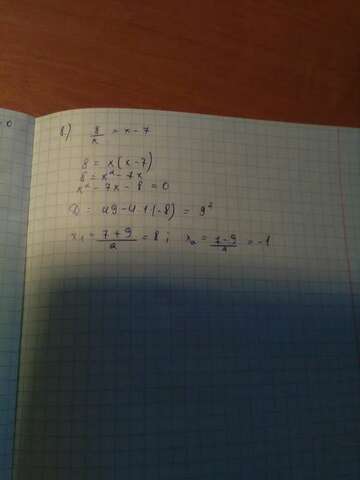 0
8.) 8/x = x - 7
8 = x(x - 7)
8 = x² - 7x
x² - 7x - 8 = 0
D = 49 - 4·1·(-8) = 9²
x₁ = (7 + 9)/2 = 8 ; x₂ = (7 - 9)/2 = -1